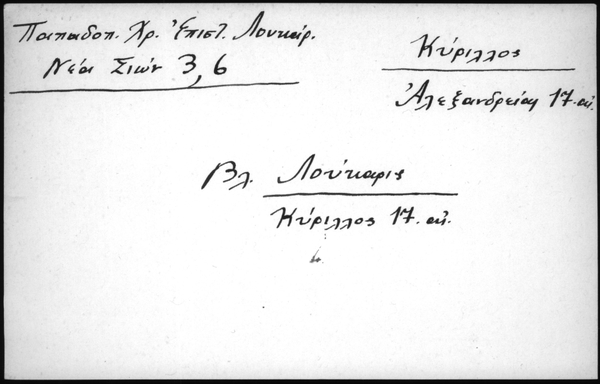 Παπαδοπ. Χρ. Ἐπιστ. Λουκάρ.
Νέα Σιών 3, 6
Κύριλλος
Ἀλεξανδρείας 17. αἰ.
Βλ. Λούκαρις
Κύριλλος 17. αἰ.